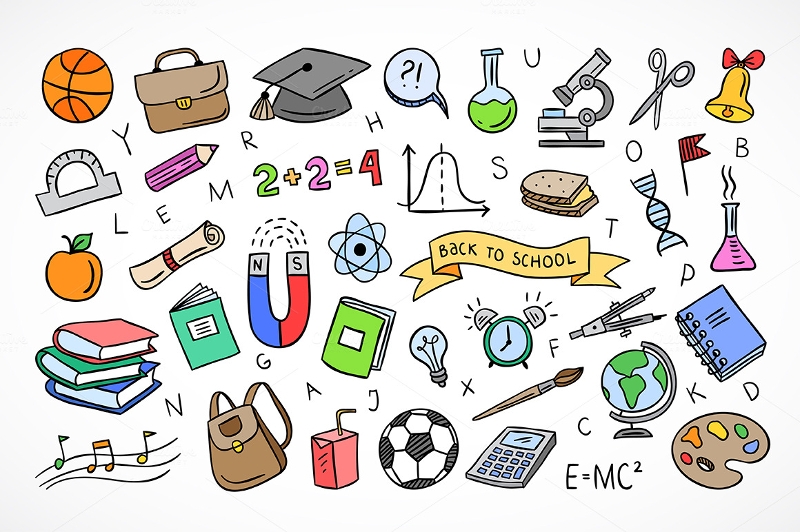 ?!
U
Y
R
H
2+2=4
S
O
B
L
E
M
T
N S
BACK TO SCHOOL
P
G
F
N
A
J
X
C
K
D
E=MC²